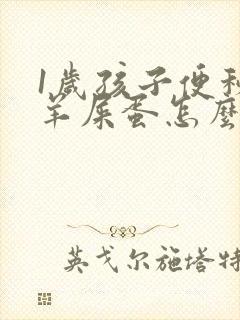 1歲孩子便秘
羊屎蛋怎麼
英戈尔施塔特